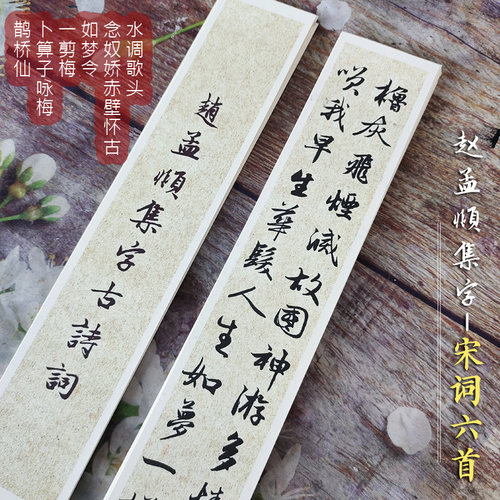 水调歌头
念奴娇赤壁怀古
如梦令
一剪梅
卜算子咏梅
鹊桥仙
趙孟頫集字古詩詞
櫓灰飛煙滅故國神游多情
咲我早生華髮人生如夢一
赵孟頫集字-宋词六首